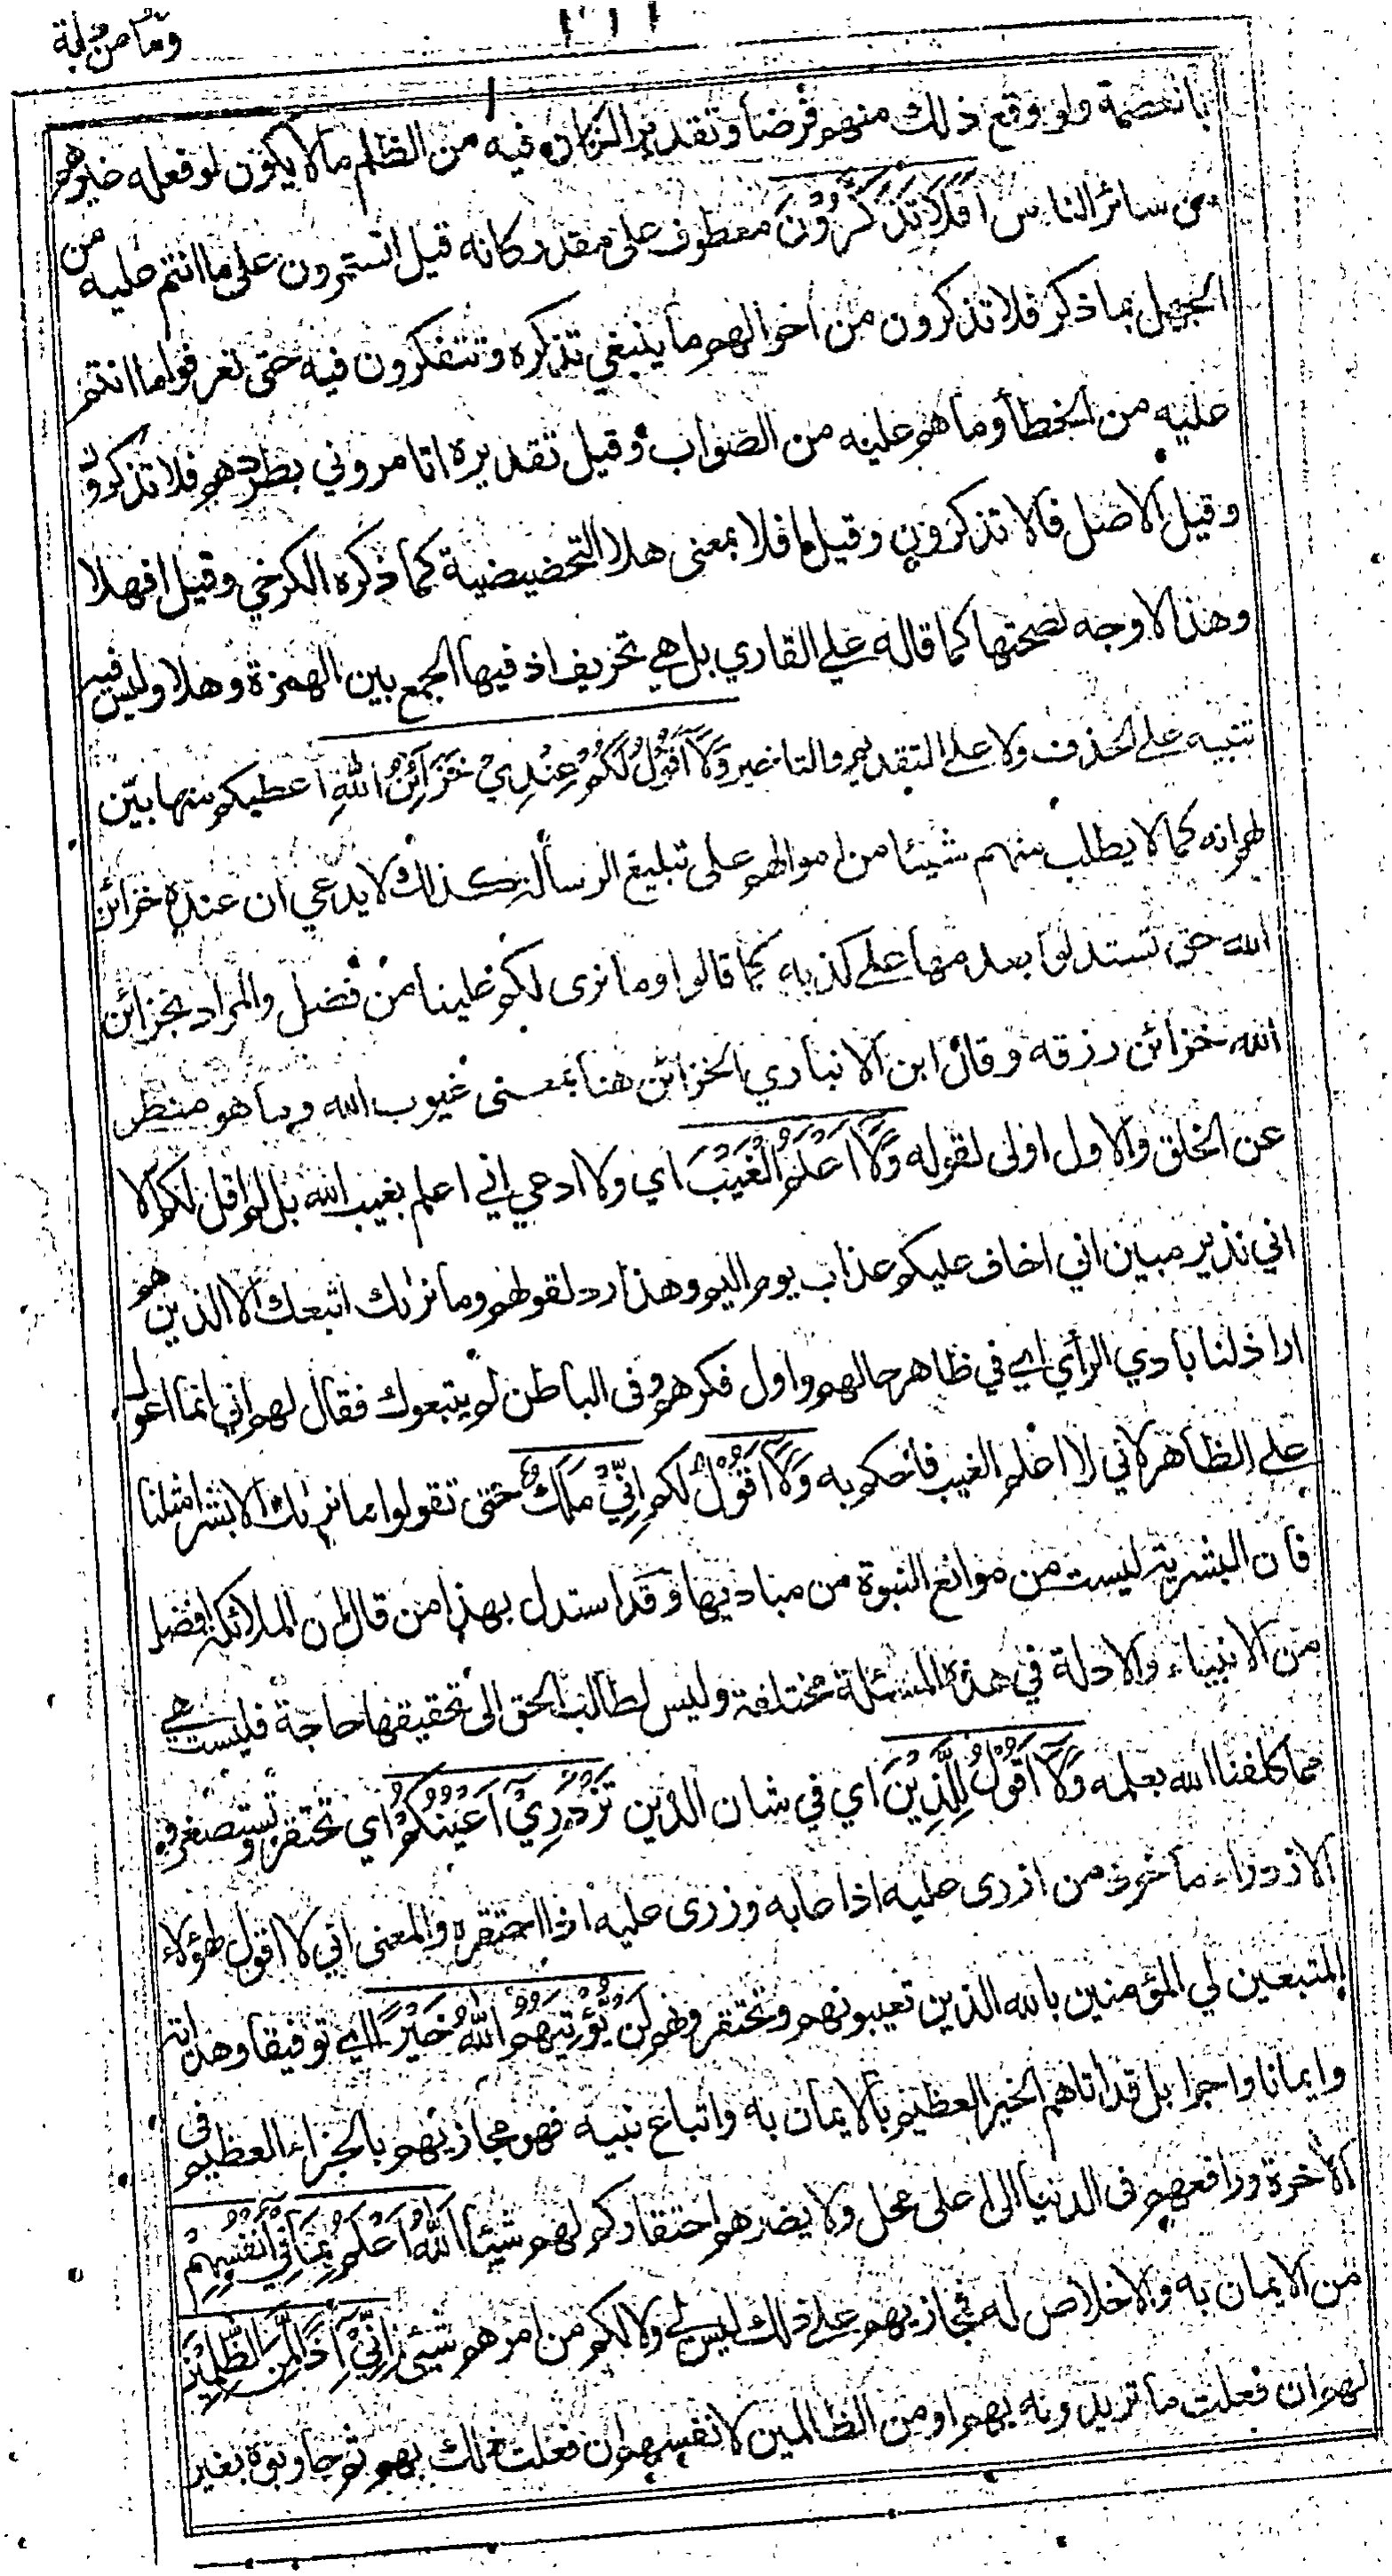 وما من دابة
بالعصمة ولو وقع ذلك منهم فرضا وتقديرا لكان فيه من الظلم ما لا يكون لو فعله غيرهم
من سائر الناس اَفَلَا تَذَكَّرُوْنَ معطوف على مقدر كانه قيل اتستمرون على ما انتم عليه من
الجهل بما ذكر فلا تذكرون من احوالهم ما ينبغي تذكره وتتفكرون فيه حتى تعرفوا ما انتم
عليه من الخطأ وما هم عليه من الصواب وقيل تقديره اتامروني بطردهم فلا تذكرون
وقيل الاصل فالا تذكرون وقيل افلا بمعنى هلا التحضيضية كما ذكره الكرخي وقيل افهلا
وهذا لا وجه لصحتها كما قاله علي القاري بل هي تحريف اذ فيها الجمع بين الهمزة وهلا وليس فيه
تنبيه على الحذف ولا على التقديم والتاخير وَلَآ اَقُوْلُ لَكُمْ عِنْدِيْ خَزَآئِنُ اللّٰهِ اعطيكم منها بيّن
لهم انه كما لا يطلب منهم شيئا من اموالهم على تبليغ الرسالة كذلك لا يدعي ان عنده خزائن
الله حتى تستدلوا بعدمها على كذبه كما قالوا وما نرى لكم علينا من فضل والمراد بخزائن
الله خزائن رزقه وقال ابن الانباري الخزائن هنا بمعنى غيوب الله وما هو منطو
عن الخلق والاول اولى لقوله وَلَآ اَعْلَمُ الْغَيْبَ اي ولا ادعي اني اعلم بغيب الله بل لم اقل لكم الا
اني نذير مبين اني اخاف عليكم عذاب يوم اليم وهذا رد لقولهم وما نراك اتبعك الا الذين هم
اراذلنا بادي الرأي اي في ظاهر حالهم واول فكرهم وفى الباطن لم يتبعوك فقال لهم اني انما اعول
على الظاهر لاني لا اعلم الغيب فاحكم به وَلَآ اَقُوْلُ لكم اِنِّيْ مَلَكٌ حتى تقولوا ما نراك الا بشرا مثلنا
فان البشرية ليست من موانع النبوة من مباديها وقد استدل بهذا من قال ان الملائكة افضل
من الانبياء والادلة في هذه المسئلة مختلفة وليس لطالب الحق الى تحقيقها حاجة فليست هي
مما كلفنا الله بعلمه وَلَآ اَقُوْلُ لِلَّذِيْنَ اي في شان الذين تَزْدَرِيْٓ اَعْيُنُكُمْ اي تحتقر وتستصغر و
الازدراء ماخوذ من ازرى عليه اذا عابه وزرى عليه اذا احتقره والمعنى اني لا اقول لهؤلاء
المتبعين لي المؤمنين بالله الذين تعيبونهم وتحتقرونهم لَنْ يُّؤْتِيَهُمُ اللّٰهُ خَيْرًا اي توفيقا وهداية
وايمانا واجرا بل قد اتاهم الخير العظيم بالايمان به واتباع نبيه فهو مجازيهم بالجزاء العظيم فى
الاخرة ورافعهم فى الدنيا الى اعلى محل ولا يضرهم احتقاركم لهم شيئا اَللّٰهُ اَعْلَمُ بِمَا فِيْٓ اَنْفُسِهِمْ
من الايمان به والاخلاص له فيجازيهم على ذلك ليس لي ولا لكم من امرهم شيئ اِنِّيْٓ اِذًا لَّمِنَ الظّٰلِمِيْنَ
لهم ان فعلت ما تريدونه بهم او من الظالمين لانفسهم ان فعلت ذلك بهم ثم جاوبوه بغير